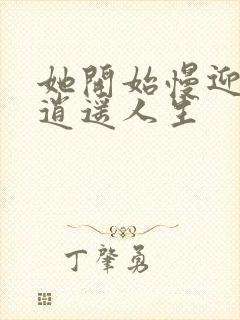 她開始慢迎
逍遥人生
丁肇勇